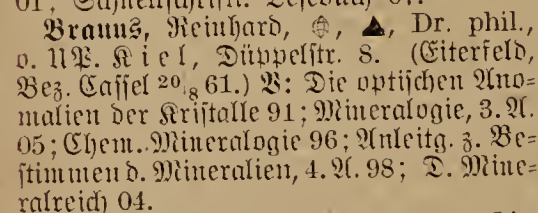 Brauns, Reinhard, ▲, Dr. phil.,
o. UP. Kiel, Düppelstr. 8. (Eiterfeld,
Bez. Cassel 20/8 61.) V: Die optischen Ano-
malien der Kristalle 91; Mineralogie, 3. A.
05; Chem. Mineralogie 96; Anleitg. z. Be-
stimmen d. Mineralien, 4. A. 98; D. Mine-
ralreich 04.